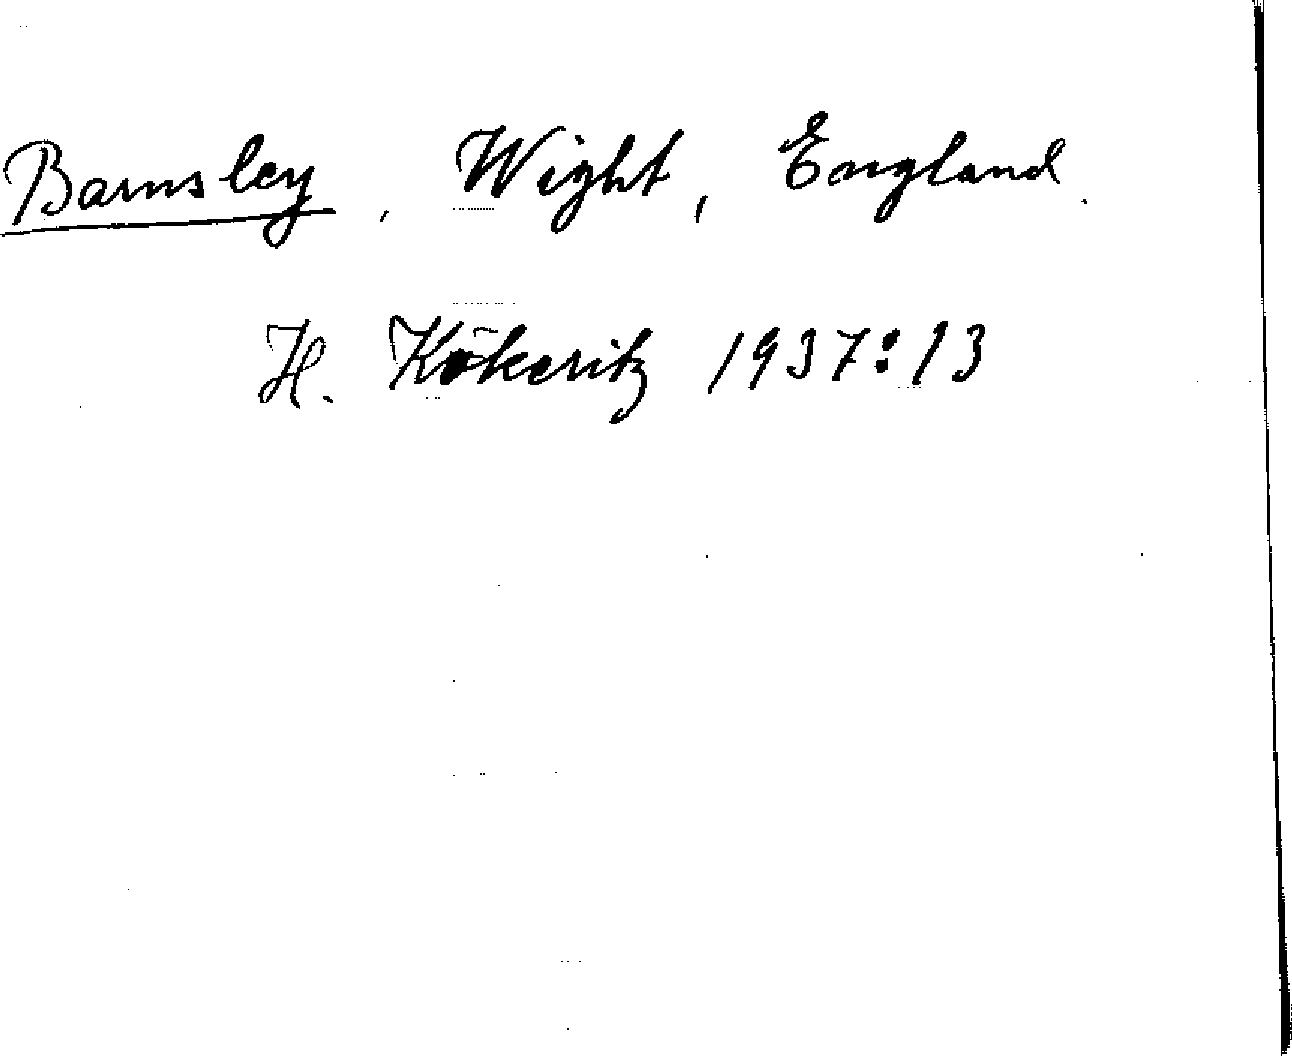 Barnsley, Wight, England.
H. Kökeritz 1937:13